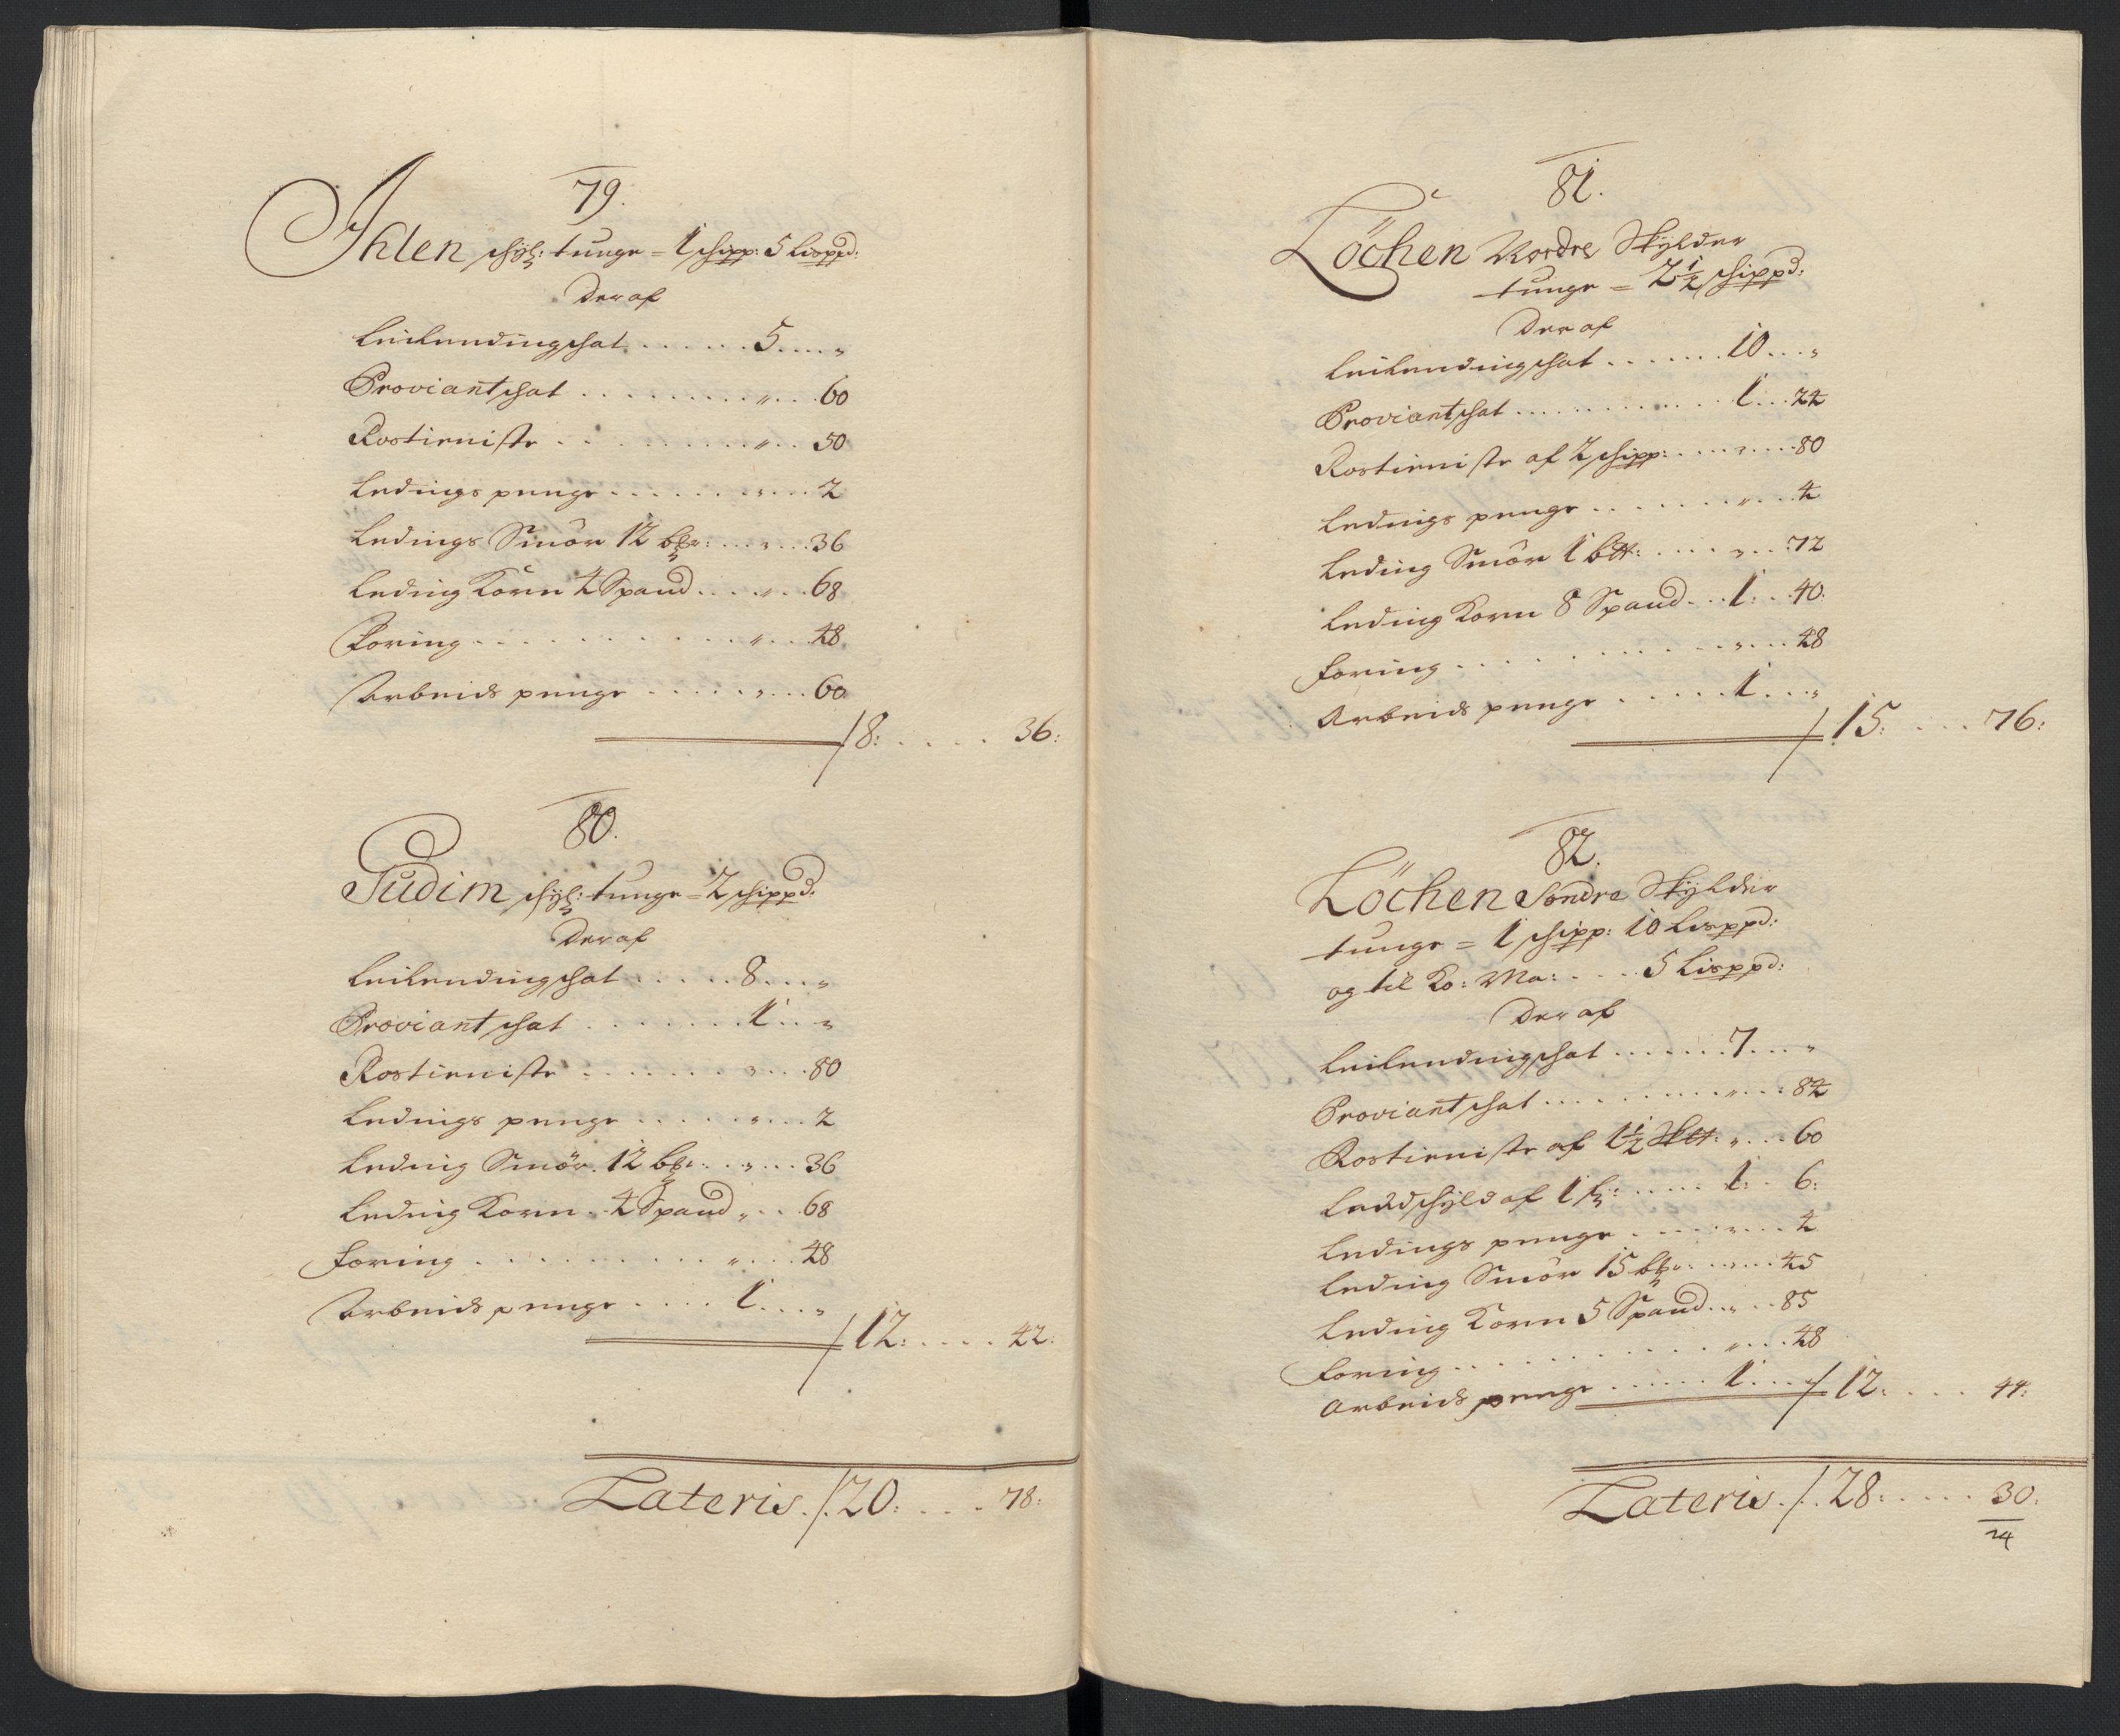 79.
Ihlen schÿl: tunge = 1 schipp: 5 Lisppd:
Der af
Leilendingschat . . . . . . 5 . . . . "
Proviantschat . . . . . . . . . " . . . 60
Rostieniste . . . . . . . . . " . . . 50
Ledings penge . . . . . . . " . . . 2
Ledings Smör 12 bſr: . . . " . . . 36
Leding Korn 4 Spand . . . " . . . 68
Foring . . . . . . . . . . . " . . . 48
Arbeids penge . . . . . " . . . 60
/8: . . . . . 36:
80.
Gudim schÿl: tunge = 2 schippd:
Der af
Leilendingschat . . . . . 8 . . . "
Proviantschat . . . . . . . 1 . . "
Rostieniste . . . . . . . " . . . 80
Ledings penge . . . . . " . . . 2
Leding Smör. 12 bſr: . . " . . . 36
Leding Korn . . 4 Spand " . . . 68
Foring . . . . . . . . . " . . . 48
Arbeids penge . . . . 1 . . . "
/12: . . . . 42:
Lateris . /. 20: . . . . 78:
81.
Löchen Nordre Skÿlder
tunge = 2½ schippd:
Der af
Leilendingschat . . . . . . . 10 . . . "
Proviantschat . . . . . . . . . . . 1 . . . 24
Rostieniste af 2 schipp: . . . . " . . . 80
Ledings penge . . . . . . . " . . . 4
Leding Smör 1 btt: . . . . " . . . 72
Leding Korn 8 Spand . . . 1: . . 40:
Foring . . . . . . . . . . " . . . 48
Arbeids penge . . . . . . 1 . . . "
/15: . . . 76:
82.
Löchen Söndre Skÿlder
tunge = 1 schipp: 10 Lisppd:
og til Ko: Ma: . . . . 5 Lisppd:
Der af
Leilendingschat . . . . . . . 7 . . . "
Proviantschat . . . . . . . . . " . . . 84
Rostieniste af 1½ " . . . 60
Landschÿld af 1 . . . . . 1: . . 6:
Ledings penge . . . . . " . . . 4
Leding Smör 15 bſr: . . . " . . . 45
Leding Korn 5 Spand . . " . . . 85
Foring . . . . . . . . . . " . . . 48
Arbeids penge . . . . . . 1 . . . " /12: . . . . 44:
Lateris . /. 28: . . . . . 30:
24